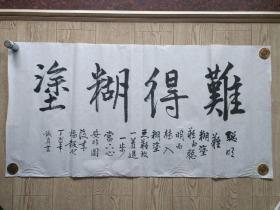 難得糊塗
聰明
難
糊塗
難由聰
明而
轉入
糊塗
更難放
一着退
一步
當下心
安非圖
後來
福報也